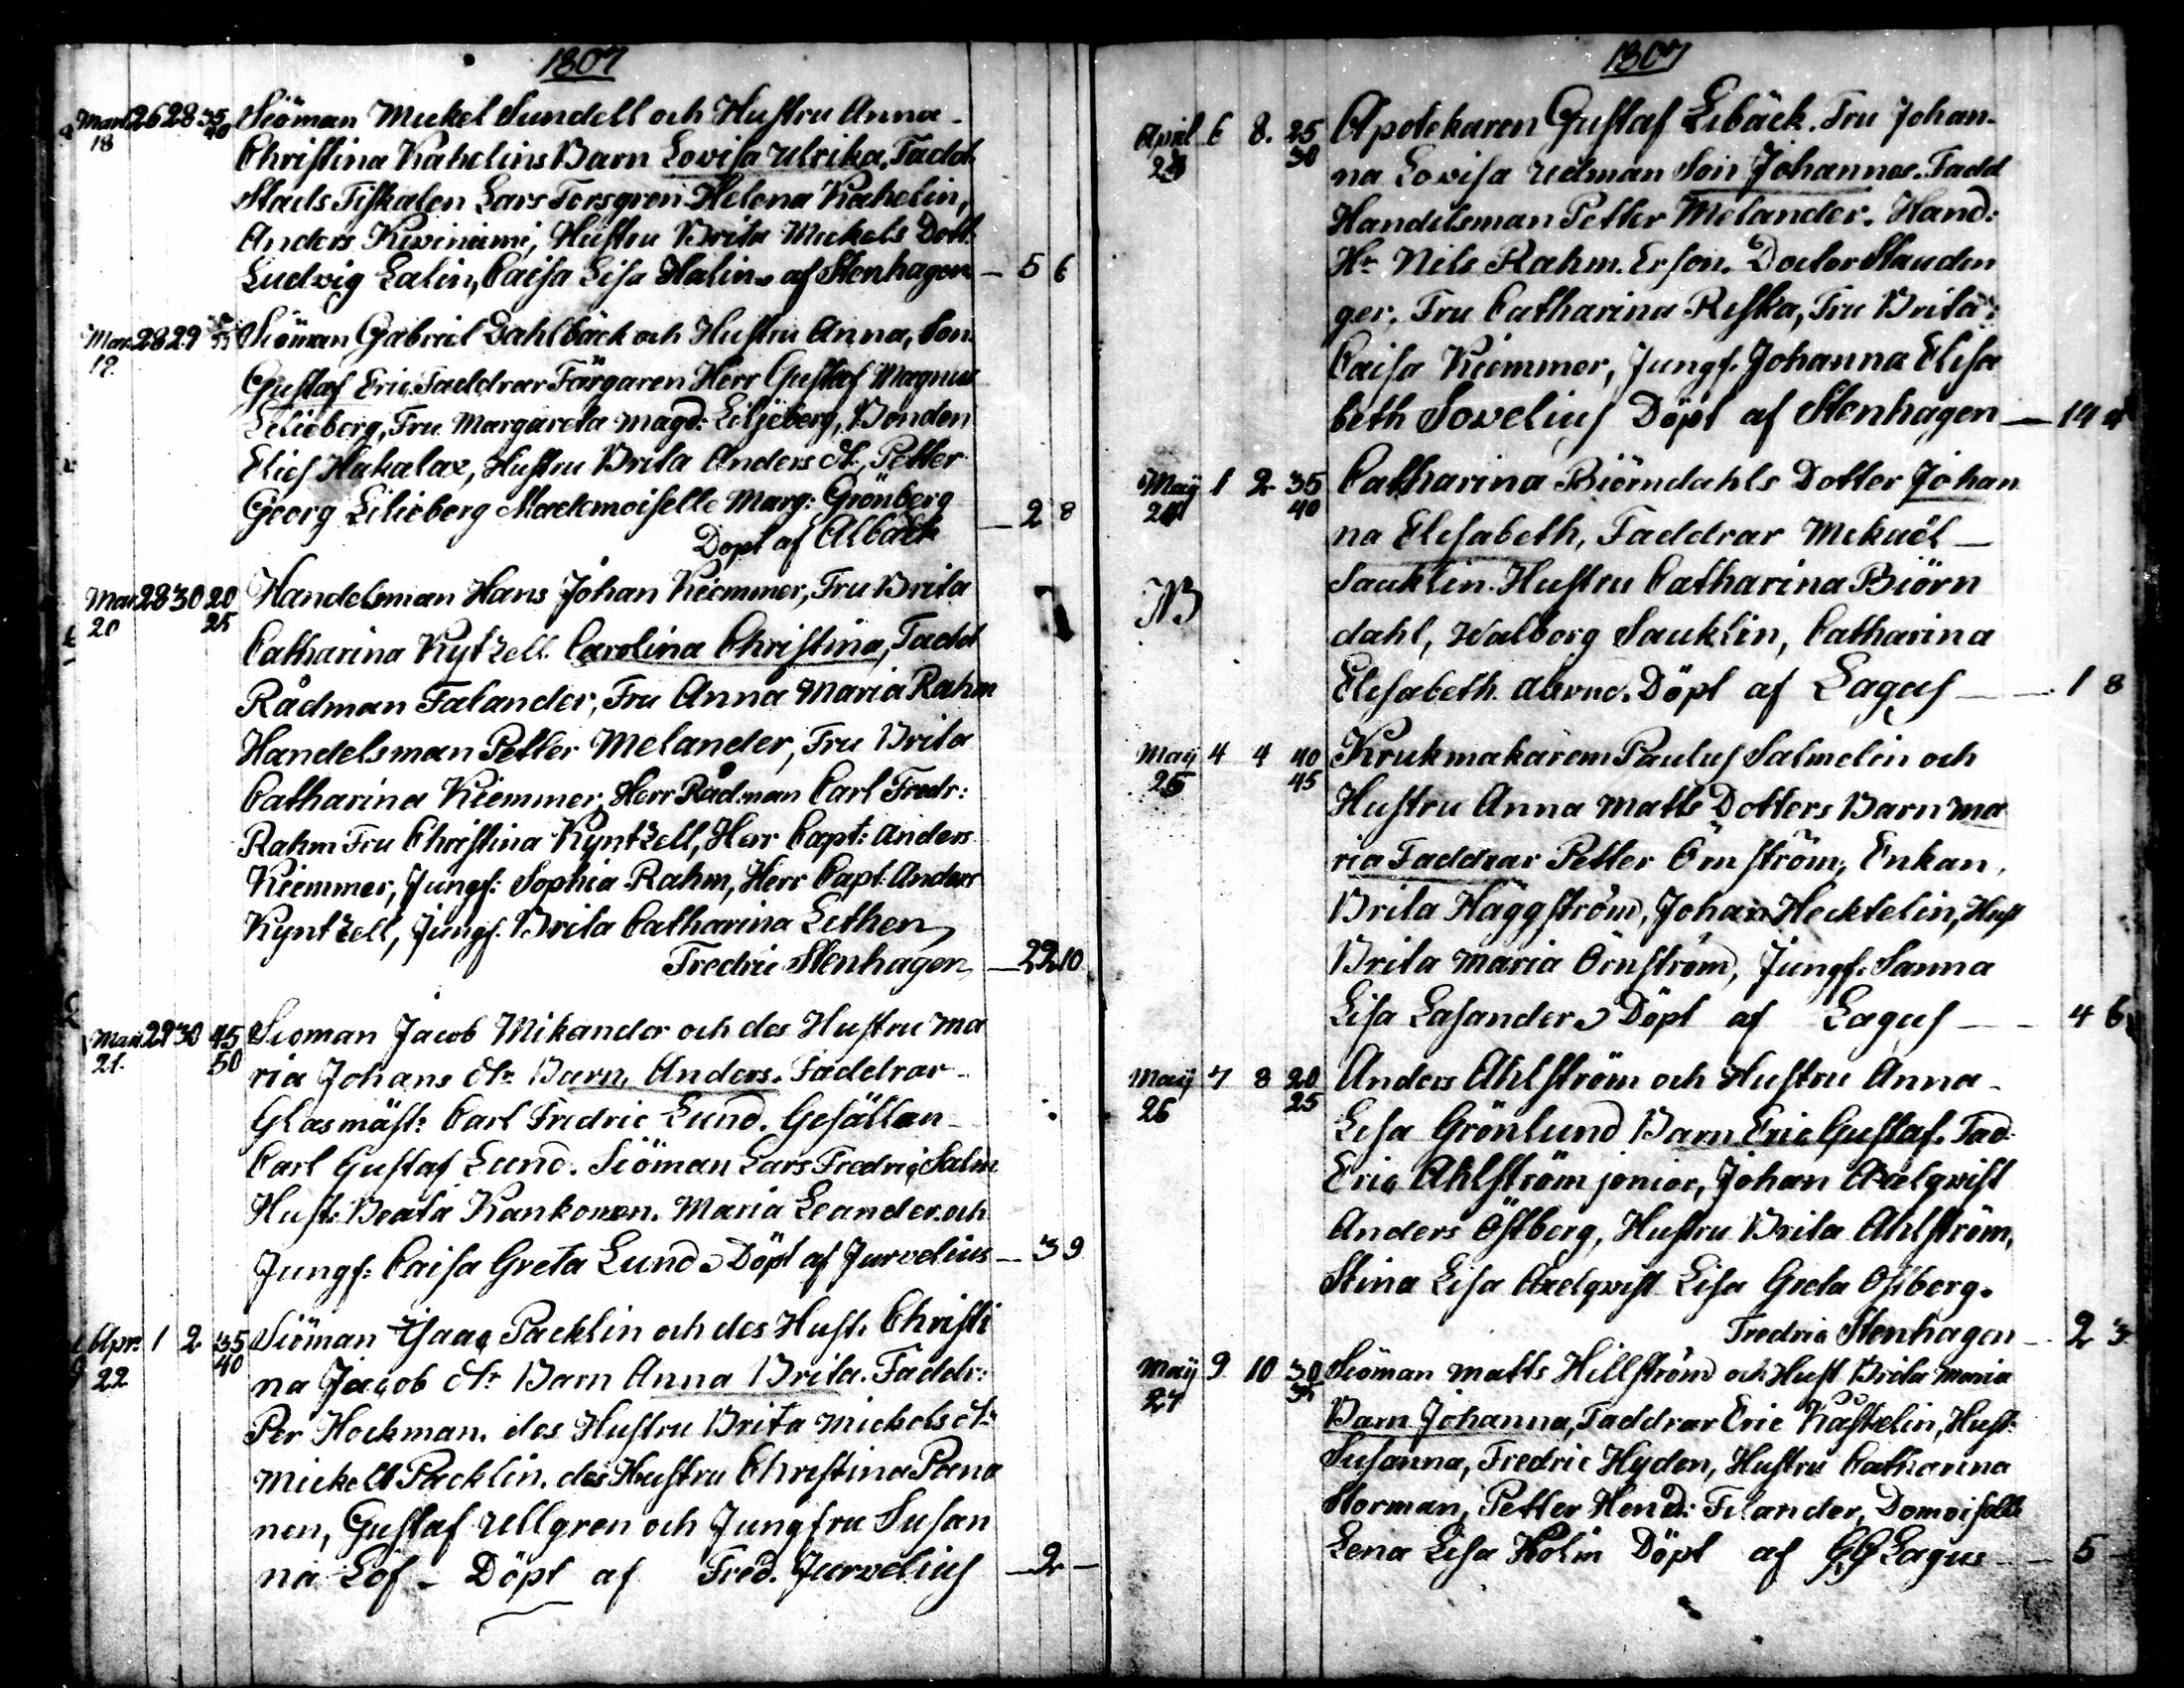 1807
Mart 26 28 35 Siöman Mickel Sundell och Hustru Anna
18 40 Christina Kahelins Barn Lovisa Ulrika, Fadd
Stads Fiskalen Lars Forsgren Helena Kahelin,
Anders Kiviniemi, Hustru Brita Mickels Dott.
Ludvig Lalin, Caisa Lisa Halin, af Stenhagen — 5 6
Mar 28 29 Siöman Gabriel Dahlbäck och Hustru Anna, Son
19 Gustaf Eric, Faddrar Färgaren Herr Gustaf Magnus
Lilieberg, Fru Margareta Magd: Liljeberg, Bonden
Elies Hukalax, Hustru Brita Anders dr, Petter
Georg Lilieberg Mademoiselle Marg: Grönberg — 2 8
Döpt af Albäck
Mar 28 30 20 Handelsman Hans Johan Kiemmer, Fru Brita
20 25 Catharina Kytzell Carolina Christina, Fadd
Rådman Falander, Fru Anna Maria Rahm
Handelsman Petter Melander, Fru Brita
Catharina Kiemmer, Herr Rådman Carl Fredr:
Rahm Fru Christina Kyntzell, Herr Capt: Anders
Kiemmer, Jungf: Sophia Rahm, Herr Capt: Anders
Kyntzell, Jungf. Brita Catharina Lithen
Fredric Stenhagen — 22 10
Mart 29 30 45 Sioman Jacob Mikander och des Hustru Ma
21. 50 ria Johans dr Barn, Anders. Faddrar
Glasmäst: Carl Fredric Lund. Gesällen
Carl Gustaf Lund. Siöman Lars Fredric Salm
Hust: Beata Kankonen. Maria Leander och
Jungf: Caisa Greta Lund. Döpt af Jurvelius — 3 9
Apr: 1 2 35 Siöman Isaac Packlin och des Hust. Christi
22 40 na Jacob dr Barn Anna Brita. Faddr:
Per Hockman. des Hustru Brita Mickels dr
Mickell Packlin. des Hustru Christina Pana
nen, Gustaf Ullgren och Jungfru Susan
na Löf — Döpt af Fred. Jurvelius — 2 —
1807
April 6 8. 25 Apotekaren Gustaf Libäck. Fru Johan
23 30 na Lovisa Udman Son Johannes. Fadd
Handelsman Petter Melander. Hand:
Hr Nils Rahm. Erson. Doctor Stauden
ger. Fru Catharina Riska, Fru Brita
Caisa Kiemmer, Jungf. Johanna Elisa
beth Sovelius Döpt af Stenhagen — 14 4
Maÿ 1 2 35 Catharina Biörndahls Dotter Johan
24 40 na Elisabeth, Faddrar Mikaël —
NB Sauklin. Hustru Catharina Biörn
dahl, Walborg Sauklin, Catharina
Elisabeth. Döpt af Lagus — 1 8
Maÿ 4 4 40 Krukmakaren Paulus Salmelin och
25 45 Hustru Anna Matts Dotters Barn Ma
ria Faddrar Petter Örnström, Enkan
Brita Häggström, Johan Hecktelin, Hust
Brita Maria Örnström, Jungf. Sanna
Lisa Lasander. Döpt af Lagus — 4 6
Maÿ 7 8 20 Anders Ahlström och Hustru Anna
26 25 Lisa Grönlund Barn Eric Gustaf. Fad
Eric Ahlström junior, Johan Axelqvist
Anders Östberg, Hustru Brita Ahlström,
Stina Lisa Axelqvist Lisa Greta Östberg.
Fredric Stenhagen — 2 3
Maÿ 9 10 30 Siöman Matts Hillström och Hust Brita Maria
27 35 Barn Johanna, Faddrar Eric Kastelin, Hust:
Susanna, Fredric Hyden, Hustru Catharina
Storman, Petter Hend: Filander, Domoiselle
Lena Lisa Holm Döpt af GG Lagus — 5 —